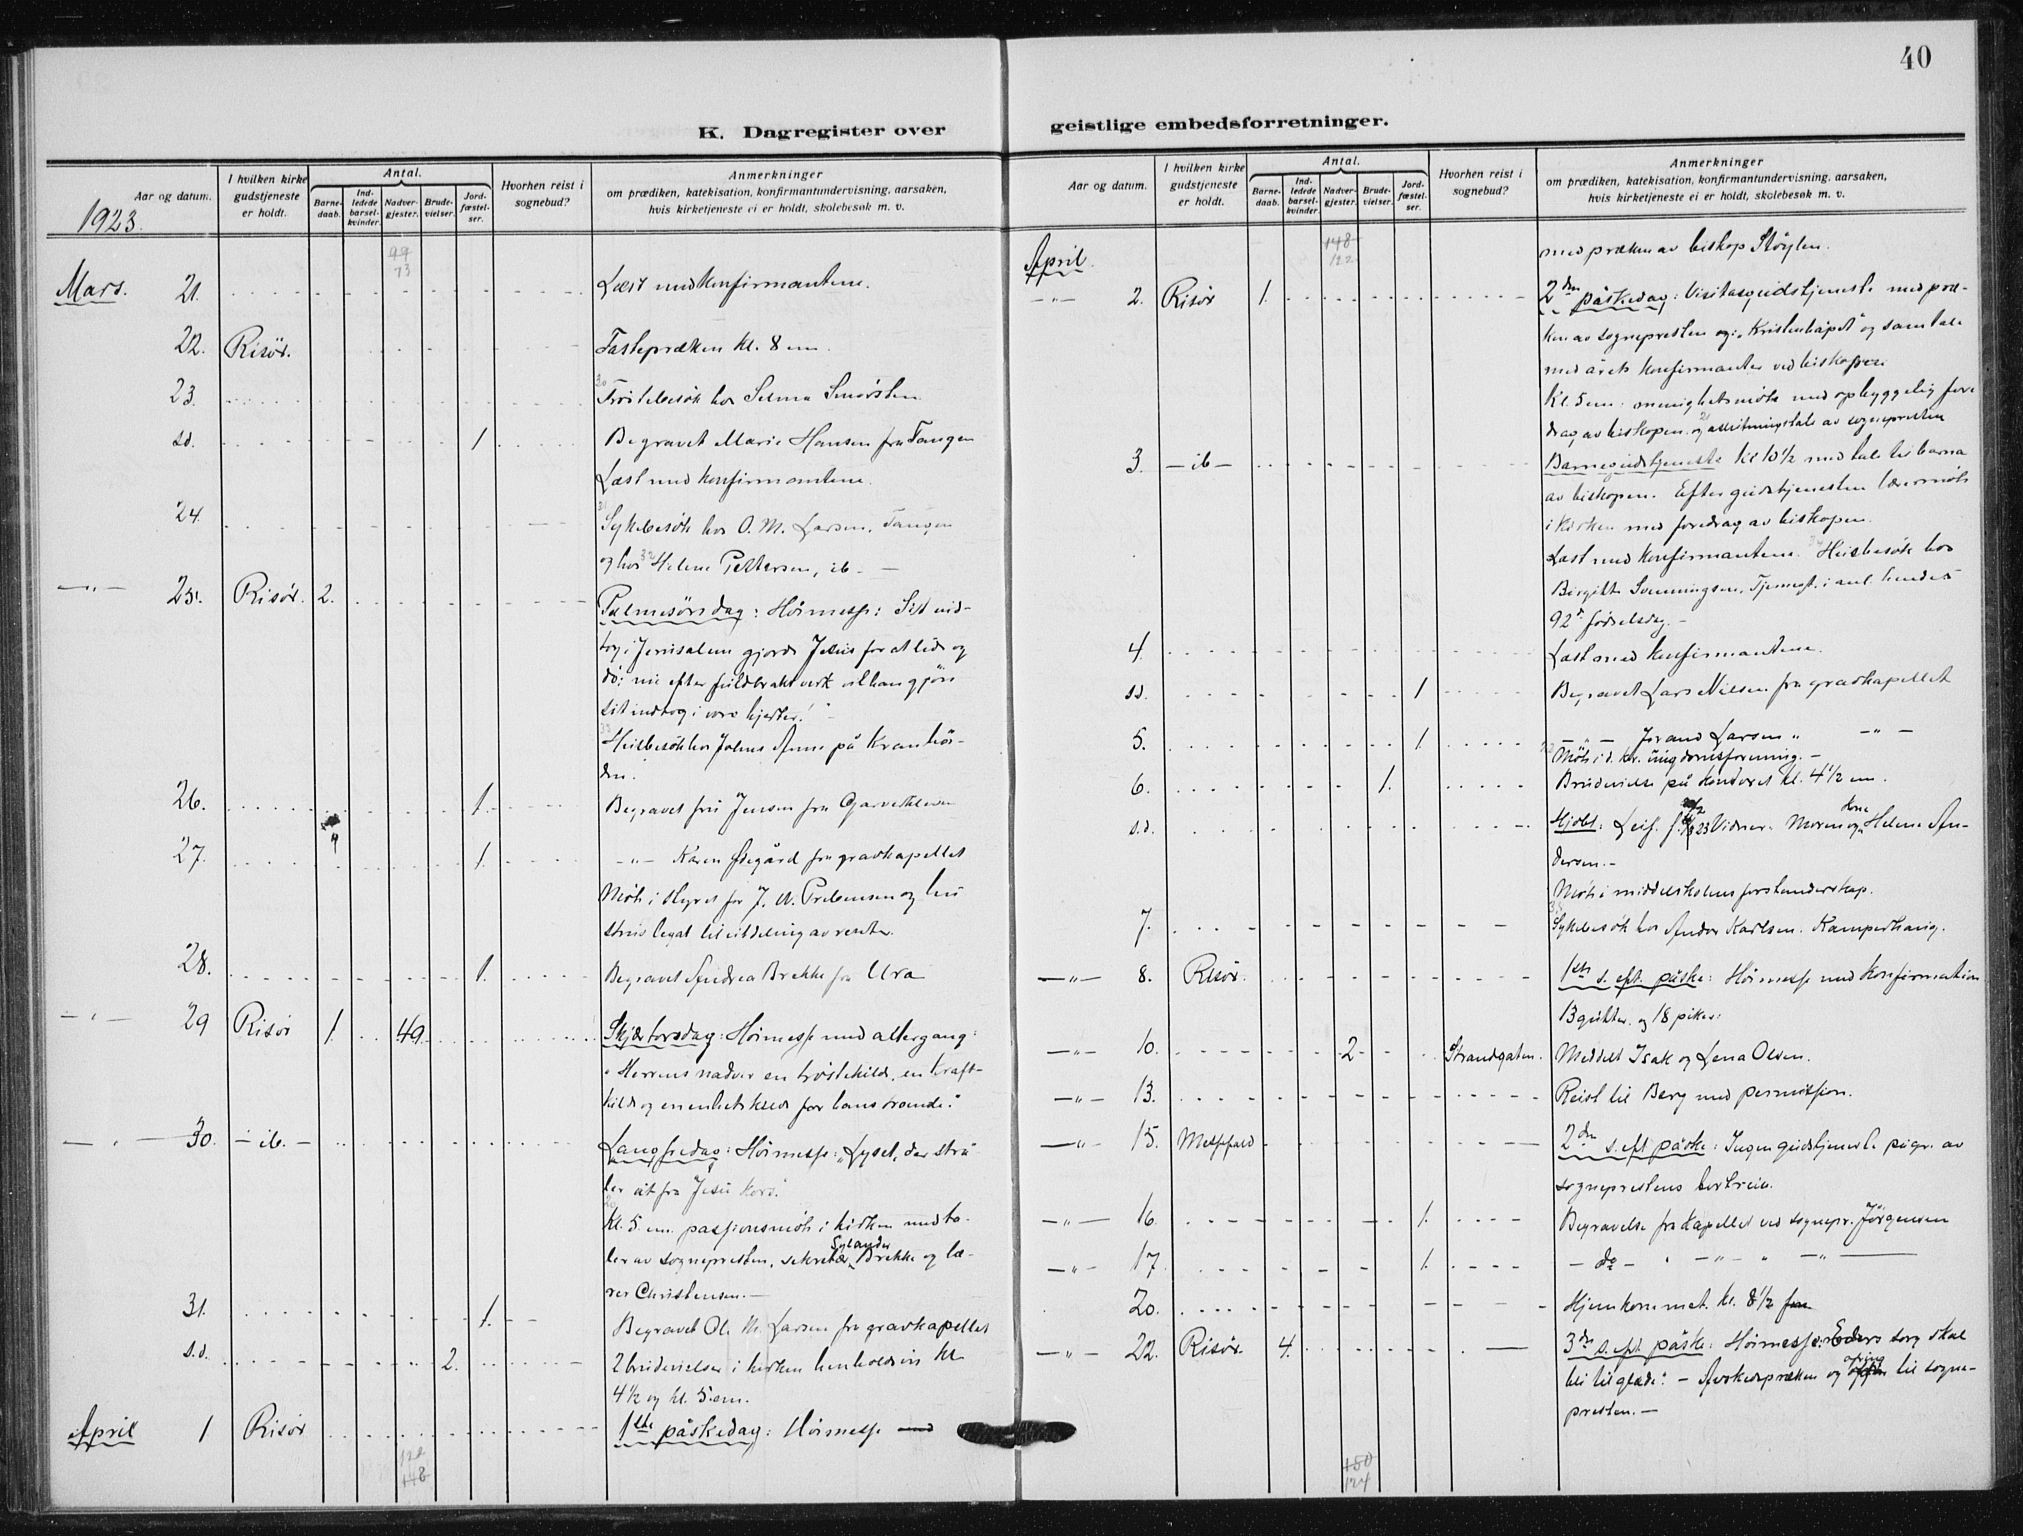 40
K. Dagregister over
geistlige embedsforretninger.
Aar og datum.
I hvilken kirke gudstjeneste er holdt.
Antal.
Barne-daab.
Ind-ledede barsel-kvinder.
Nadver-gjester.
Brude-vielser.
Jord-fæstel-ser.
Hvorhen reist i sognebud?
Anmerkninger
om prædiken, katekisation, konfirmantundervisning, aarsaken,
hvis kirketjeneste ei er holdt, skolebesøk m. v.
1923.
99
73
Mars. 21. Læst med konfirmantene.
22. Risør. Fastepræken kl. 8 em.
23. 30 Trøstebesøk hos Selma
sd. 1. Begravet Marie Hansen fra Tangen
Læst med konfirmantene.
24. 31 Sykebesøk hos O. M. Larsen, Tangen
og hos 32 Helene Pettersen, ib. -
-"- 25. Risør. 2. Palmesøndag: Høimesse: Sit ind-
tog i Jerusalem gjorde Jesus for at lide og
dø; nu efter fuldbrakt verk vil han gjøre
sit indtog i vore hjerter."
33 Heisbesøk hos på Kranhei-
26. 1. Begravet fru Jensen fra
27. 1. -"- Karen fra gravkapellet
Møte i styret for J. W. Prebensen og hu-
strus legat til utdeling av renter.
28. 1. Begravet Andrea Brekke fra Ura
-"- 29 Risør 1. 49. Skjærtorsdag: Høimesse med altergang:
"Herrens nadver en trøstekilde, en kraft-
kilde og en enhetskilde for hans troende."
-"- 30. - ib. - Langfredag: Høimesse: "Lyset, der strå-
ler ut fra Jesu kors."
Kl. 5 em. passionsmøte i kirken med ta-
ler av sognepresten, sekretær Sylander Brekke og læ-
rer Christensen. -
31. 1. Begravet Ole M. Larsen fra gravkapellet
s.d. 2. 2 brudevielser i kirken henholdsvis kl.
4½ og kl. 5 em.
April 1 Risør 1ste påskedag: Høimesse med
122
148
Aar og datum.
I hvilken kirke gudstjeneste er holdt.
Antal.
Barne-daab.
Ind-ledede barsel-kvinder.
Nadver-gjester.
Brude-vielser.
Jord-fæstel-ser.
Hvorhen reist i sognebud?
Anmerkninger
om prædiken, katekisation, konfirmantundervisning, aarsaken,
hvis kirketjeneste ei er holdt, skolebesøk m. v.
148
122
April. med præken av biskop Støylen.
-"- 2. Risør 1. 2den påskedag: Visitasgudstjeneste med præ-
ken av sognepresten og: "Kristenhåpet" og samtale
med årets konfirmanter ved biskopen
Kl. 5 em. menighetsmøte med opbyggelig fore-
drag av biskopen og avslutningstale av sognepresten
3. - ib - Barnegudstjeneste kl 10½ med tale til barna
av biskopen. Efter gudstjenesten lærermøte
i kirken med foredrag av biskopen.
Læst med konfirmantene. 34 Heisbesøk hos
Birgitte Svenningsen, Tjennest. i anl. hendes
92de fødselsdag. -
4. Læst med konfirmantene.
s.d. 1 Begravet Lars Nilsen fra gravkapellet
5. 1. -"- Jørand Larsen " -"-
Møte i d. kr. ungdomsforening. -
6. 1. Brudevielse på kontoret kl. 4½ em.
s.d. Hjdbt: Leif f. 23 Vidner: Moren og Helene An-
dersen. -
Møte i middelskolens forstanderskap.
7. 35 Sykebesøk hos Andor Karlsen. Kamperhaug.
-"- 8. Risør. 1ste s. eft. påske: Høimesse med konfirmation
13 gutter og 18 piker:
-"- 10. 2 Strandgaten. Meddelt Isak og Lena Olsen.
-"- 13. Reist til Berg med permission.
-"- 15. Messfald 2den s. eft påske: Ingen gudstjeneste pågr. av
sogneprestens bortreise.
-"- 16. 1. Begravelse fra kapellet ved sognepr. Jørgensen
-"- 17. 1. - do - " -"- " -"-
20. Hjemkommet. kl. 8½ fm
-"- 22. Risør. 4. 3die s. eft. påske: Høimesse: Eders sorg skal
bli til glæde". - Avskedspræken og ofring til sogne-
presten. -
150
124